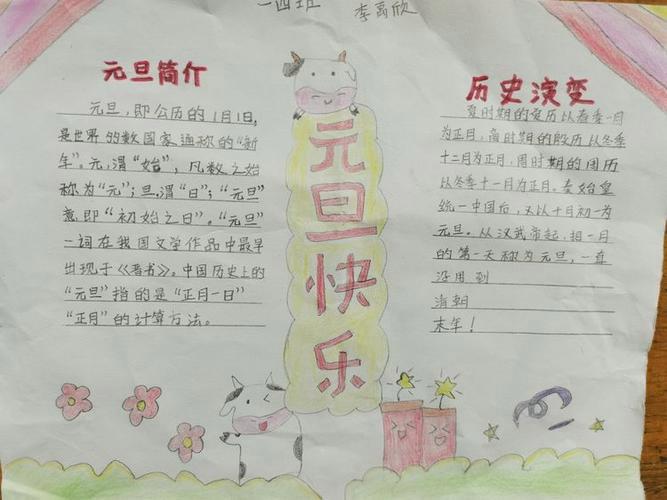 一四班 李禹欣
元旦简介
元旦，即公历的1月1日，
是世界多数国家通称的“新
年”。元，谓“始”，凡数之始
称为“元”；旦，谓“日”；“元旦”
意即“初始之日”。“元旦”
一词在我国文学作品中最早
出现于《晋书》。中国历史上的
“元旦”指的是“正月一日”
“正月”的计算方法。
元旦快乐
历史演变
夏时期的夏历以春季一月
为正月，商时期的殷历以冬季
十二月为正月，周时期的周历
以冬季十一月为正月。秦始皇
统一中国后，又以十月初一为
元旦。从汉武帝起，把一月
的第一天称为元旦，一直
沿用到
清朝
末年！